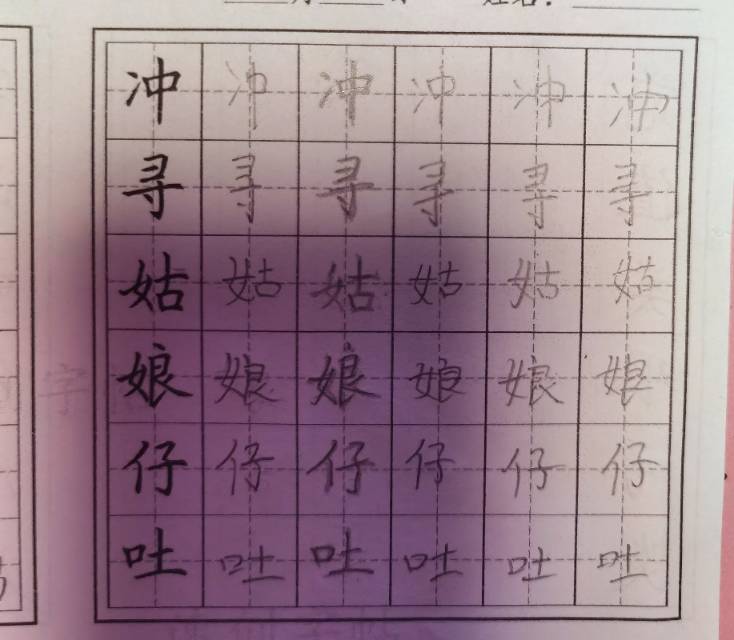 姓名：
冲冲冲冲冲冲
寻寻寻寻寻寻
姑姑姑姑姑姑
娘娘娘娘娘娘
仔仔仔仔仔仔
吐吐吐吐吐吐